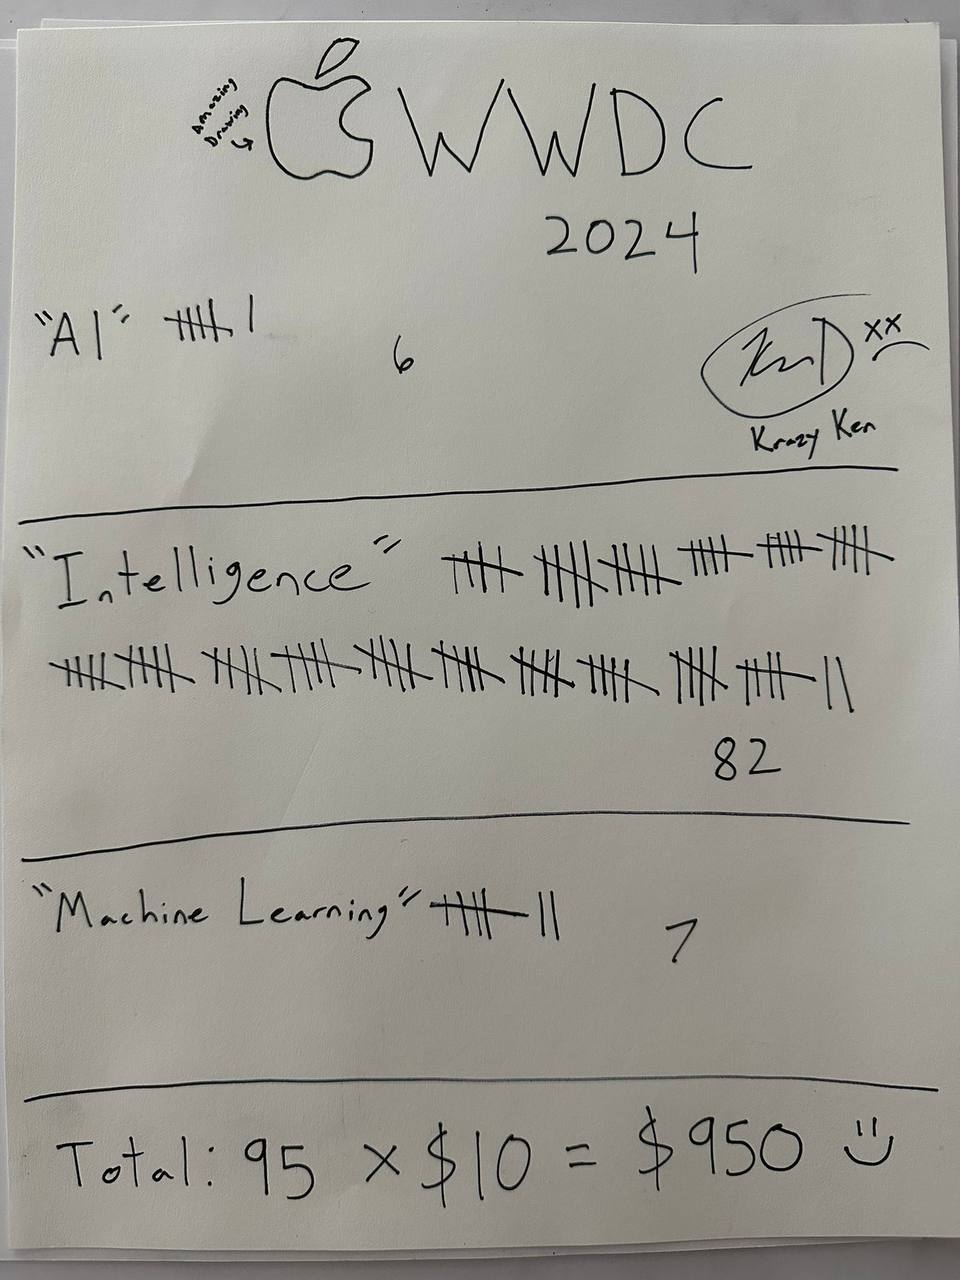 Amazing
Drawing
WWDC
2024
"AI"
6
xx
Krazy Ken
"Intelligence"
82
"Machine Learning"
7
Total: 95 x $10 = $950